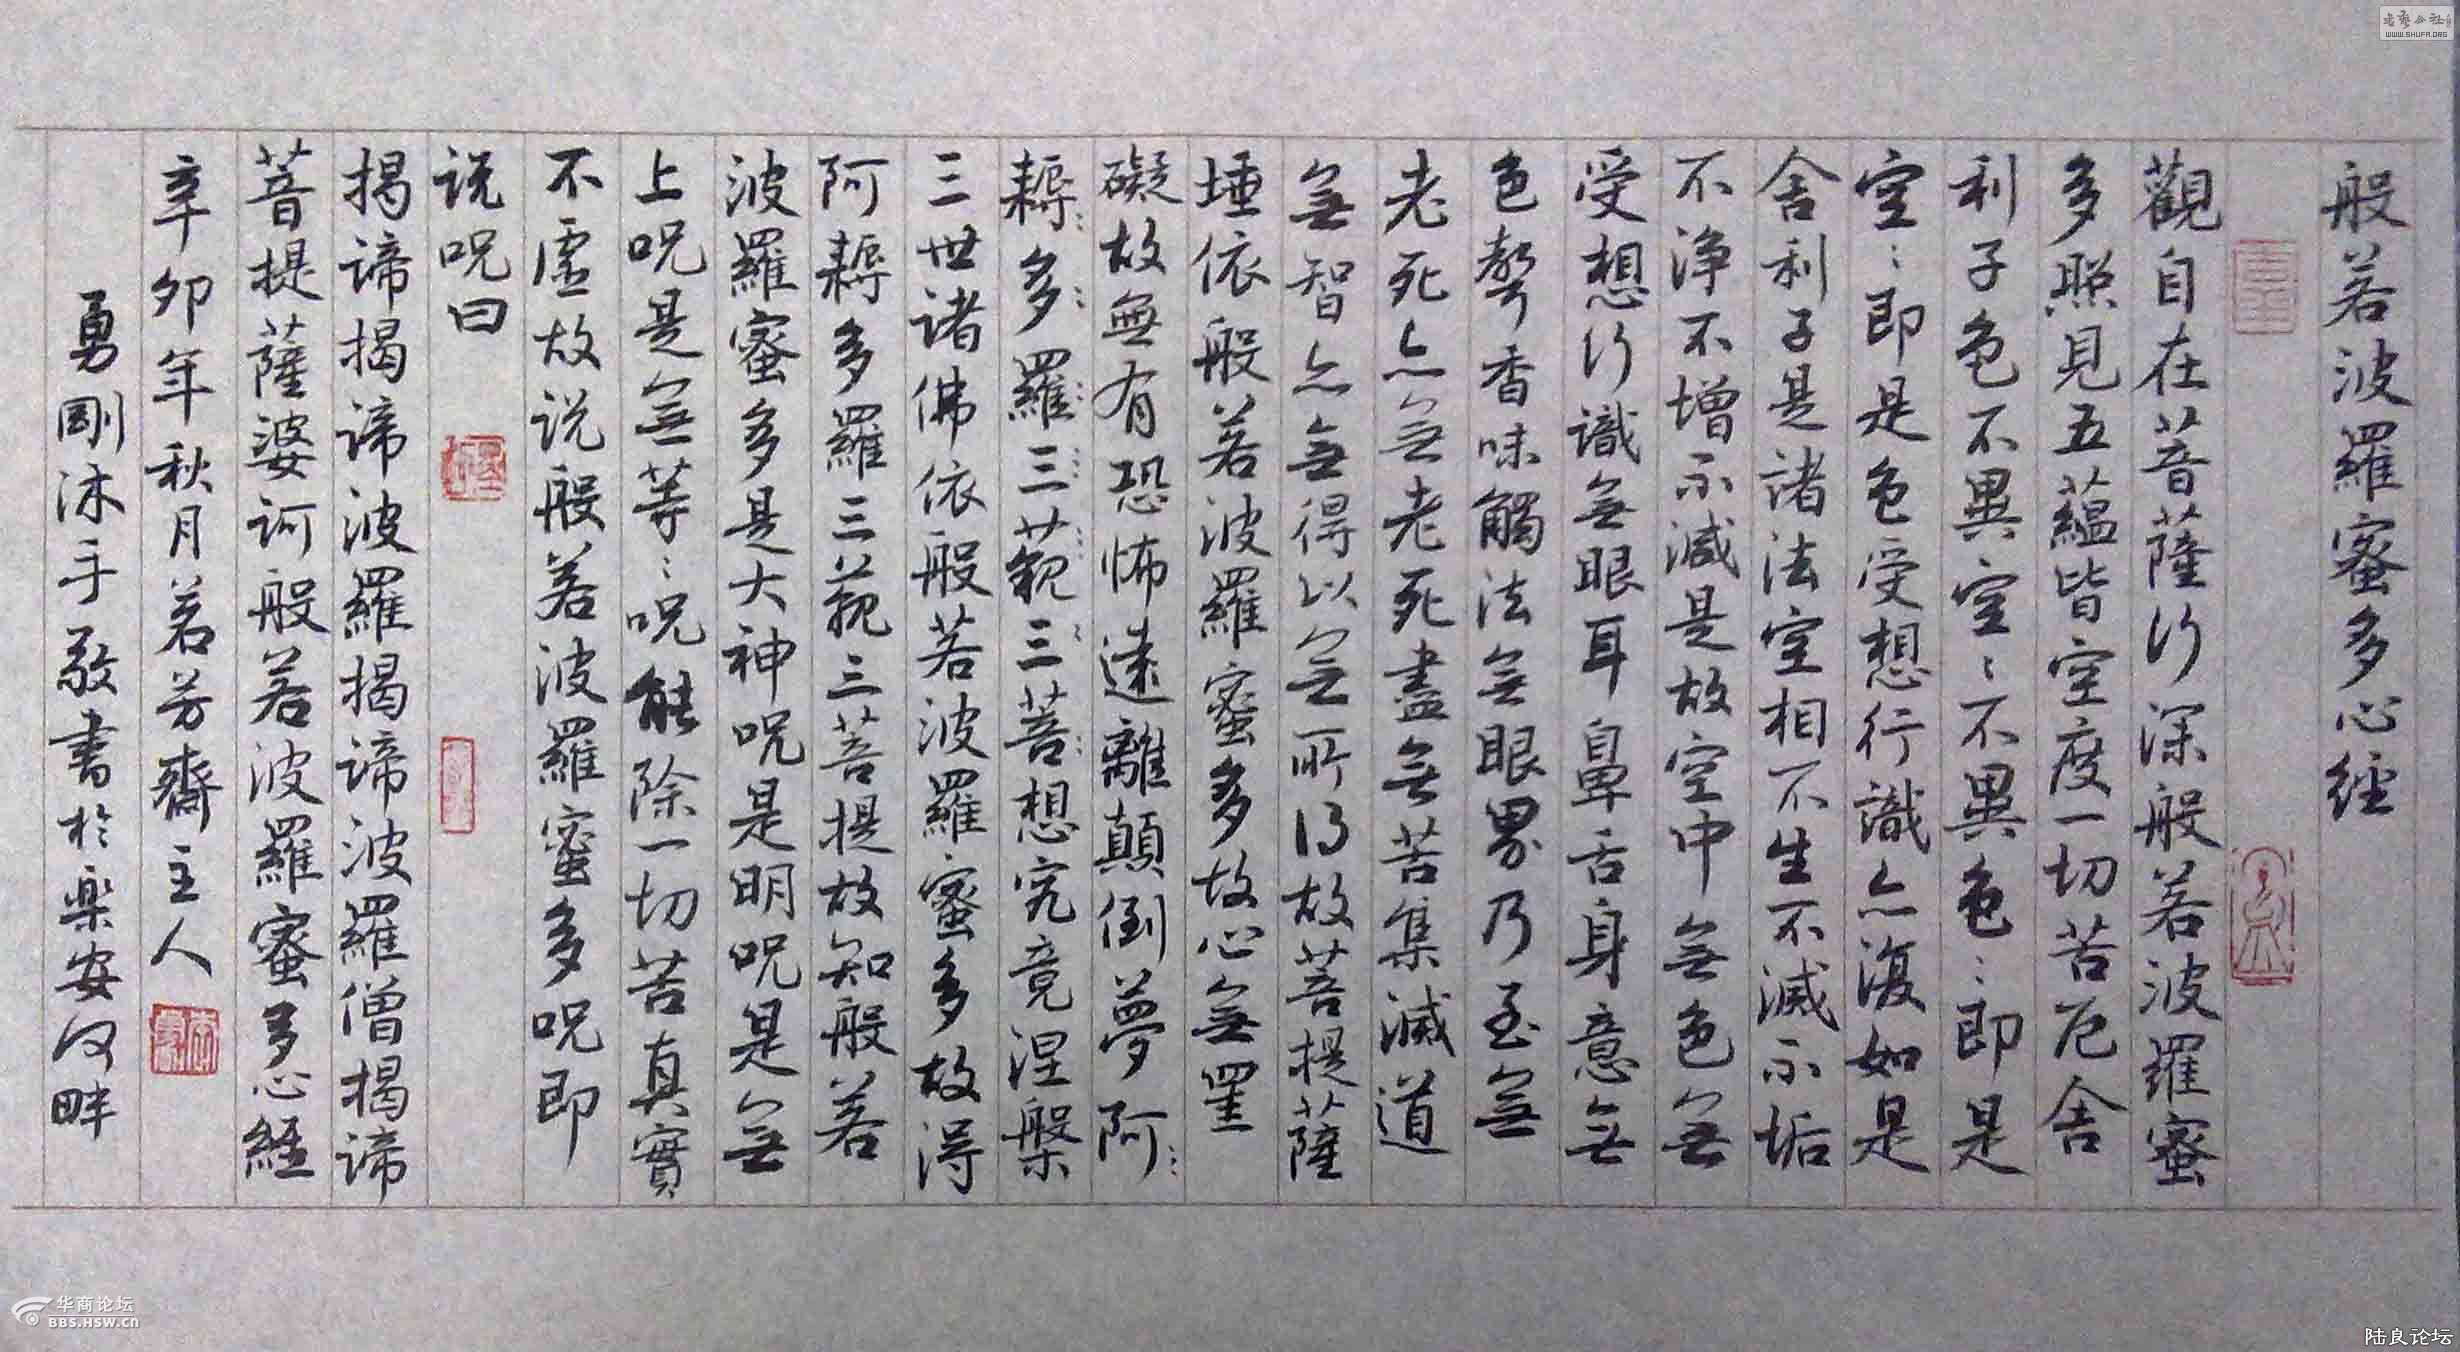 般若波羅蜜多心經
觀自在菩薩行深般若波羅蜜
多照見五蘊皆空度一切苦厄舍
利子色不異空〻不異色〻即是
空〻即是色受想行識亦復如是
舍利子是諸法空相不生不滅不垢
不淨不增不減是故空中無色無
受想行識無眼耳鼻舌身意無
色聲香味觸法無眼界乃至無
老死亦無老死盡無苦集滅道
無智亦無得以無所得故菩提薩
埵依般若波羅蜜多故心無罣
礙故無有恐怖遠離顛倒夢阿
耨多羅三藐三菩想究竟涅槃
三世諸佛依般若波羅蜜多故得
阿耨多羅三藐三菩提故知般若
波羅蜜多是大神呪是明呪是無
上呪是無等〻呪能除一切苦真實
不虛故说般若波羅蜜多呪即
说呪曰
揭谛揭谛波羅揭谛波羅僧揭谛
菩提薩婆訶般若波羅蜜多心經
辛卯年秋月茗芳齋主人
勇剛沐手敬書於樂安河畔
WWW.SHUFA.ORG
华商论坛
BBS.HSW.CN
陆良论坛